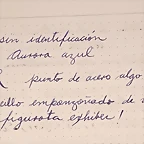 sin identificación
Aurora azul
punto de acero algo
illo emponzoñado de
figurota exhiber!